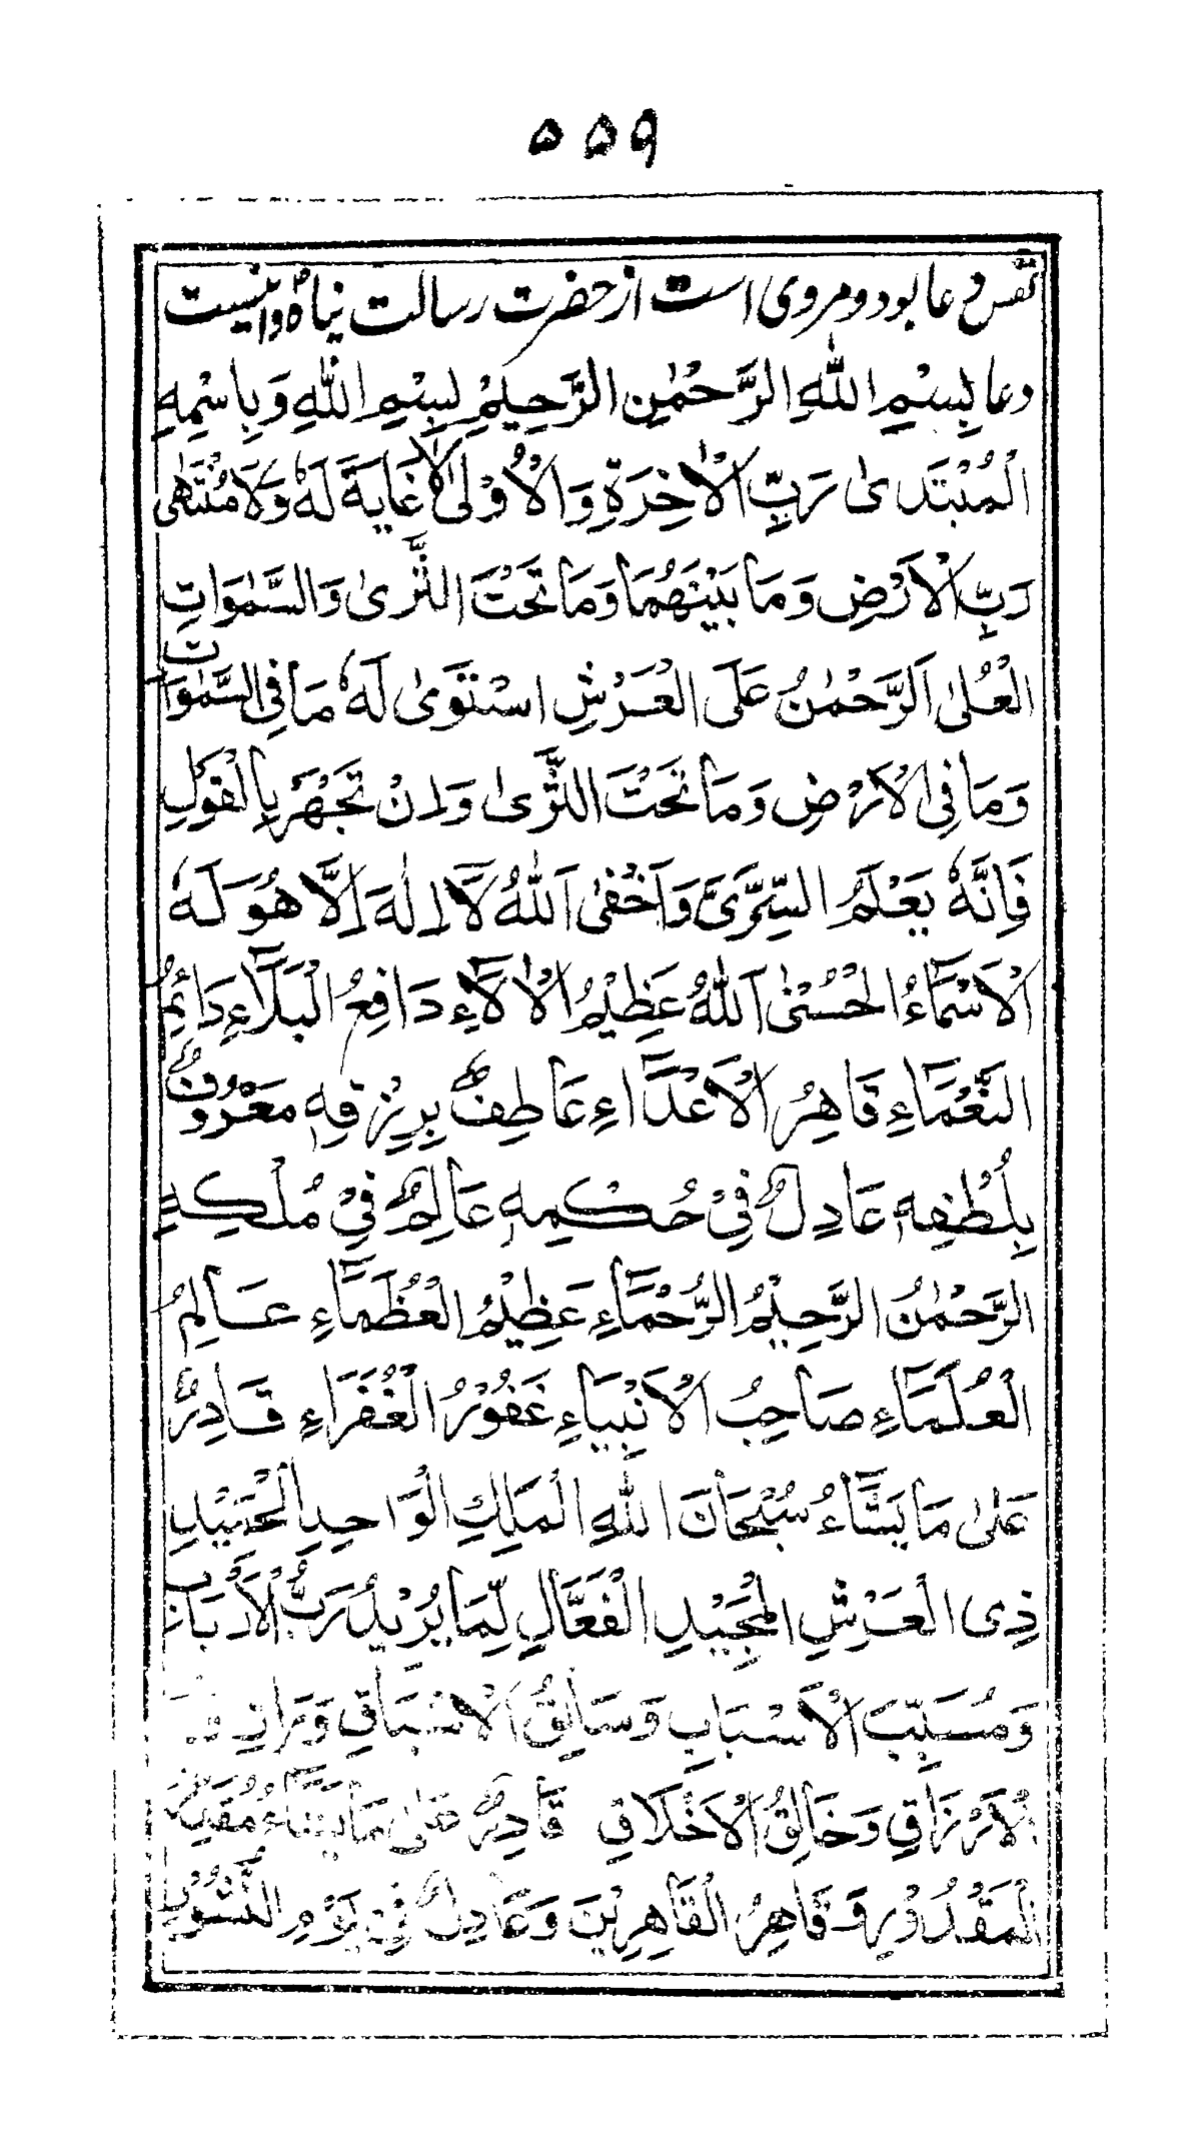 ۵۵۹
نفس و عا بود و مروی است از حضرت رسالت پناه ص و اینست
دعا بِسْمِ اللهِ الرَّحْمٰنِ الرَّحِيْمِ بِسْمِ اللهِ وَبِاسْمِهِ
الْمُبْتَدٰى رَبِّ الْاٰخِرَةِ وَالْاُوْلٰى لَا غَايَةَ لَهٗ وَلَا مُنْتَهٰى
رَبِّ الْاَرْضِ وَمَا بَيْنَهُمَا وَمَا تَحْتَ الثَّرٰى وَالسَّمٰوَاتِ
الْعُلٰى اَلرَّحْمٰنُ عَلَى الْعَرْشِ اسْتَوٰى لَهٗ مَا فِى السَّمٰوَاتِ
وَمَا فِى الْاَرْضِ وَمَا تَحْتَ الثَّرٰى وَاِنْ تَجْهَرْ بِالْقَوْلِ
فَاِنَّهٗ يَعْلَمُ السِّرَّ وَاَخْفٰى اَللهُ لَا اِلٰهَ اِلَّا هُوَ لَهٗ
الْاَسْمَاءُ الْحُسْنٰى اَللهُ عَظِيْمُ الْاٰلَاءِ دَافِعُ الْبَلَاءِ دَائِمُ
النَّعْمَاءِ قَاهِرُ الْاَعْدَاءِ عَاطِفٌ بِرِزْقِهٖ مَعْرُوْفٌ
بِلُطْفِهٖ عَادِلٌ فِيْ حُكْمِهٖ عَالِمٌ فِيْ مُلْكِهٖ
الرَّحْمٰنُ الرَّحِيْمُ الرُّحَمَاءِ عَظِيْمُ الْعُظَمَاءِ عَالِمُ
الْعُلَمَاءِ صَاحِبُ الْاَنْبِيَاءِ غَفُوْرُ الْغُفَرَاءِ قَادِرٌ
عَلٰى مَا يَشَاءُ سُبْحَانَ اللهِ الْمَلِكِ الْوَاحِدِ الْحَمِيْدِ
ذِى الْعَرْشِ الْمَجِيْدِ الْفَعَّالِ لِّمَا يُرِيْدُ رَبُّ الْاَرْبَابِ
وَمُسَبِّبَ الْاَسْبَابِ وَسَابِقُ الْاَسْبَاقِ وَرَازِقُ
الْاَرْزَاقِ وَخَالِقُ الْاَخْلَاقِ قَادِرٌ عَلٰى مَا يَشَاءُ مُقَدِّرُ
الْمَقْدُوْرِ وَقَاهِرُ الْقَاهِرِيْنَ وَعَادِلٌ فِيْ يَوْمِ النُّشُوْرِ